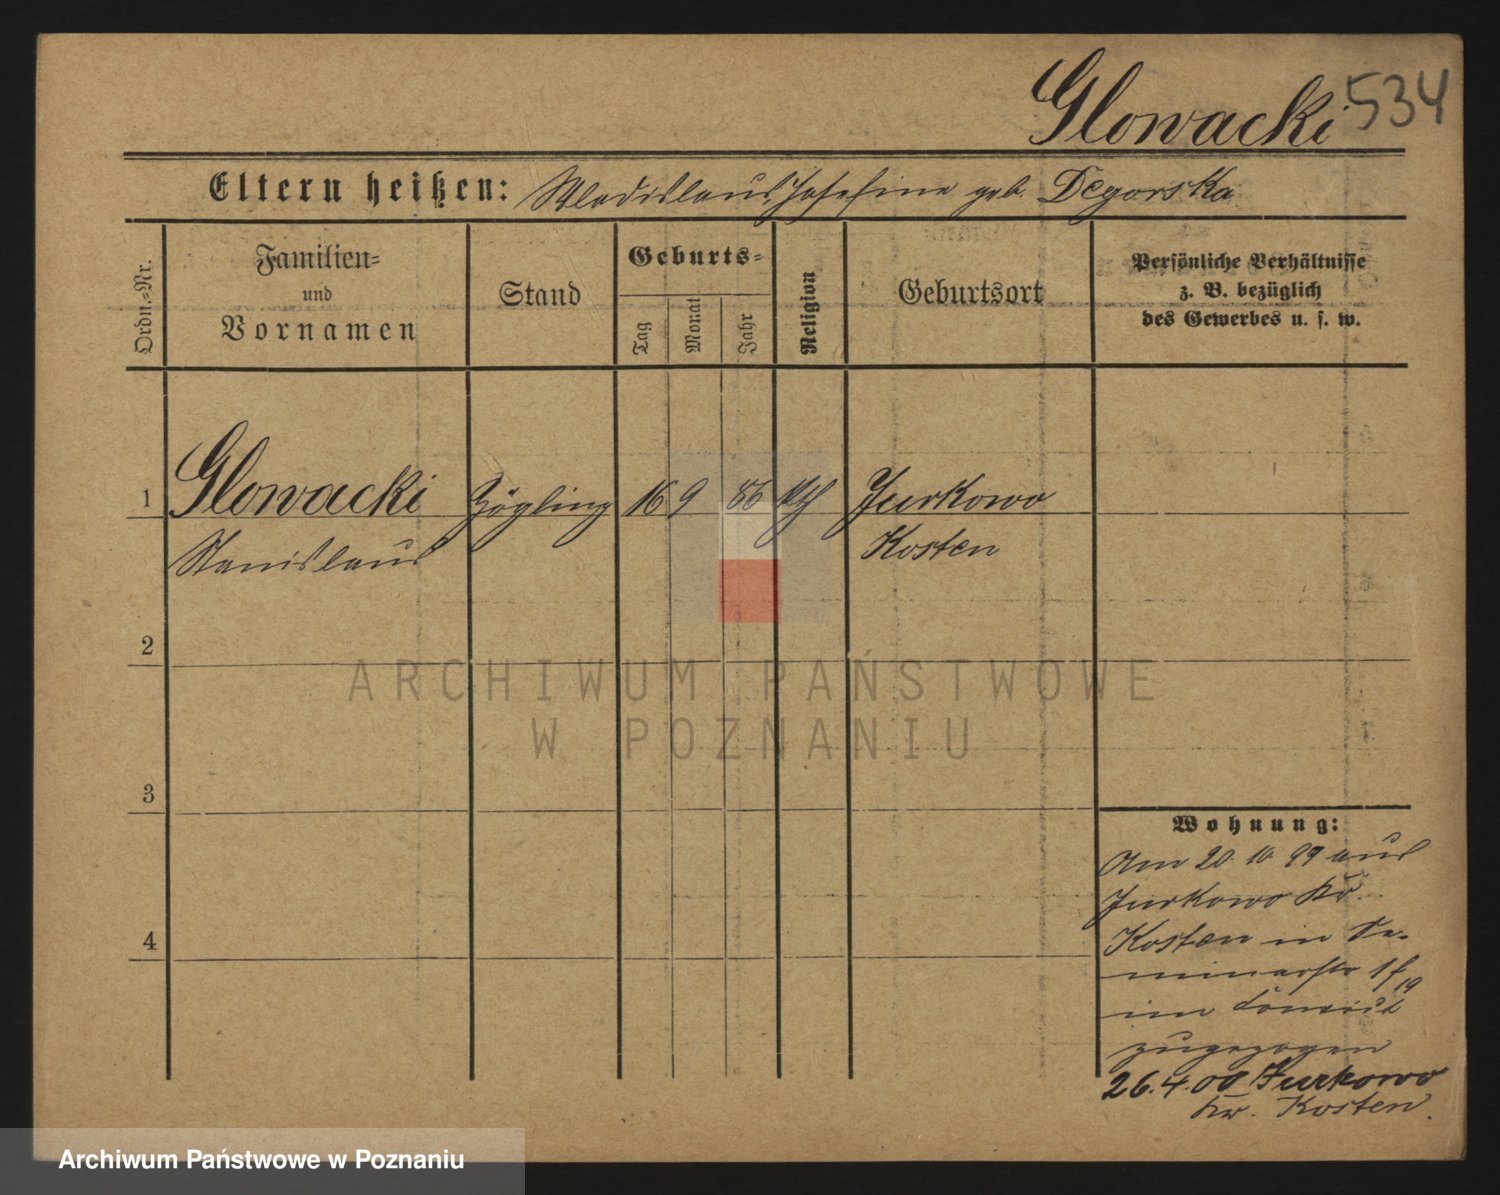 Glowacki 534
Eltern heißen: Wladislaus, Josefine geb. Degorska
Ordn.-Nr.
Familien-
und
Vornamen
Stand
Geburts-
Tag
Monat
Jahr
Religion
Geburtsort
Persönliche Verhältnisse
z. B. bezüglich
des Gewerbes u. s. w.
1 Glowacki Zögling 16 9 86 kth Jurkowo
Stanislaus Kosten
2
ARCHIWUM PAŃSTWOWE
W POZNANIU
3
Wohnung:
Am 20. 10. 99 aus
Jurkowo Kr.
Kosten in Se-
minarstr
im
zugezogen
26. 4. 00 Jurkowo
Kr. Kosten.
4
Archiwum Państwowe w Poznaniu